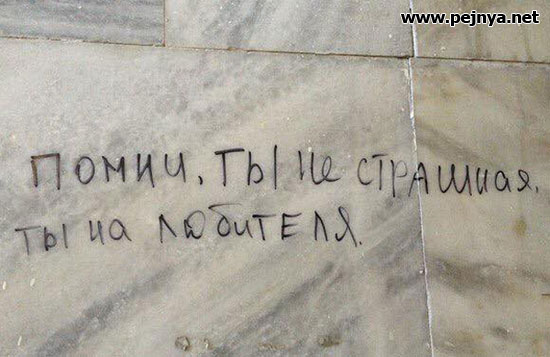 www.pejnya.net
ПОМНИ, ТЫ НЕ СТРАШНАЯ,
ТЫ НА ЛЮБИТЕЛЯ.